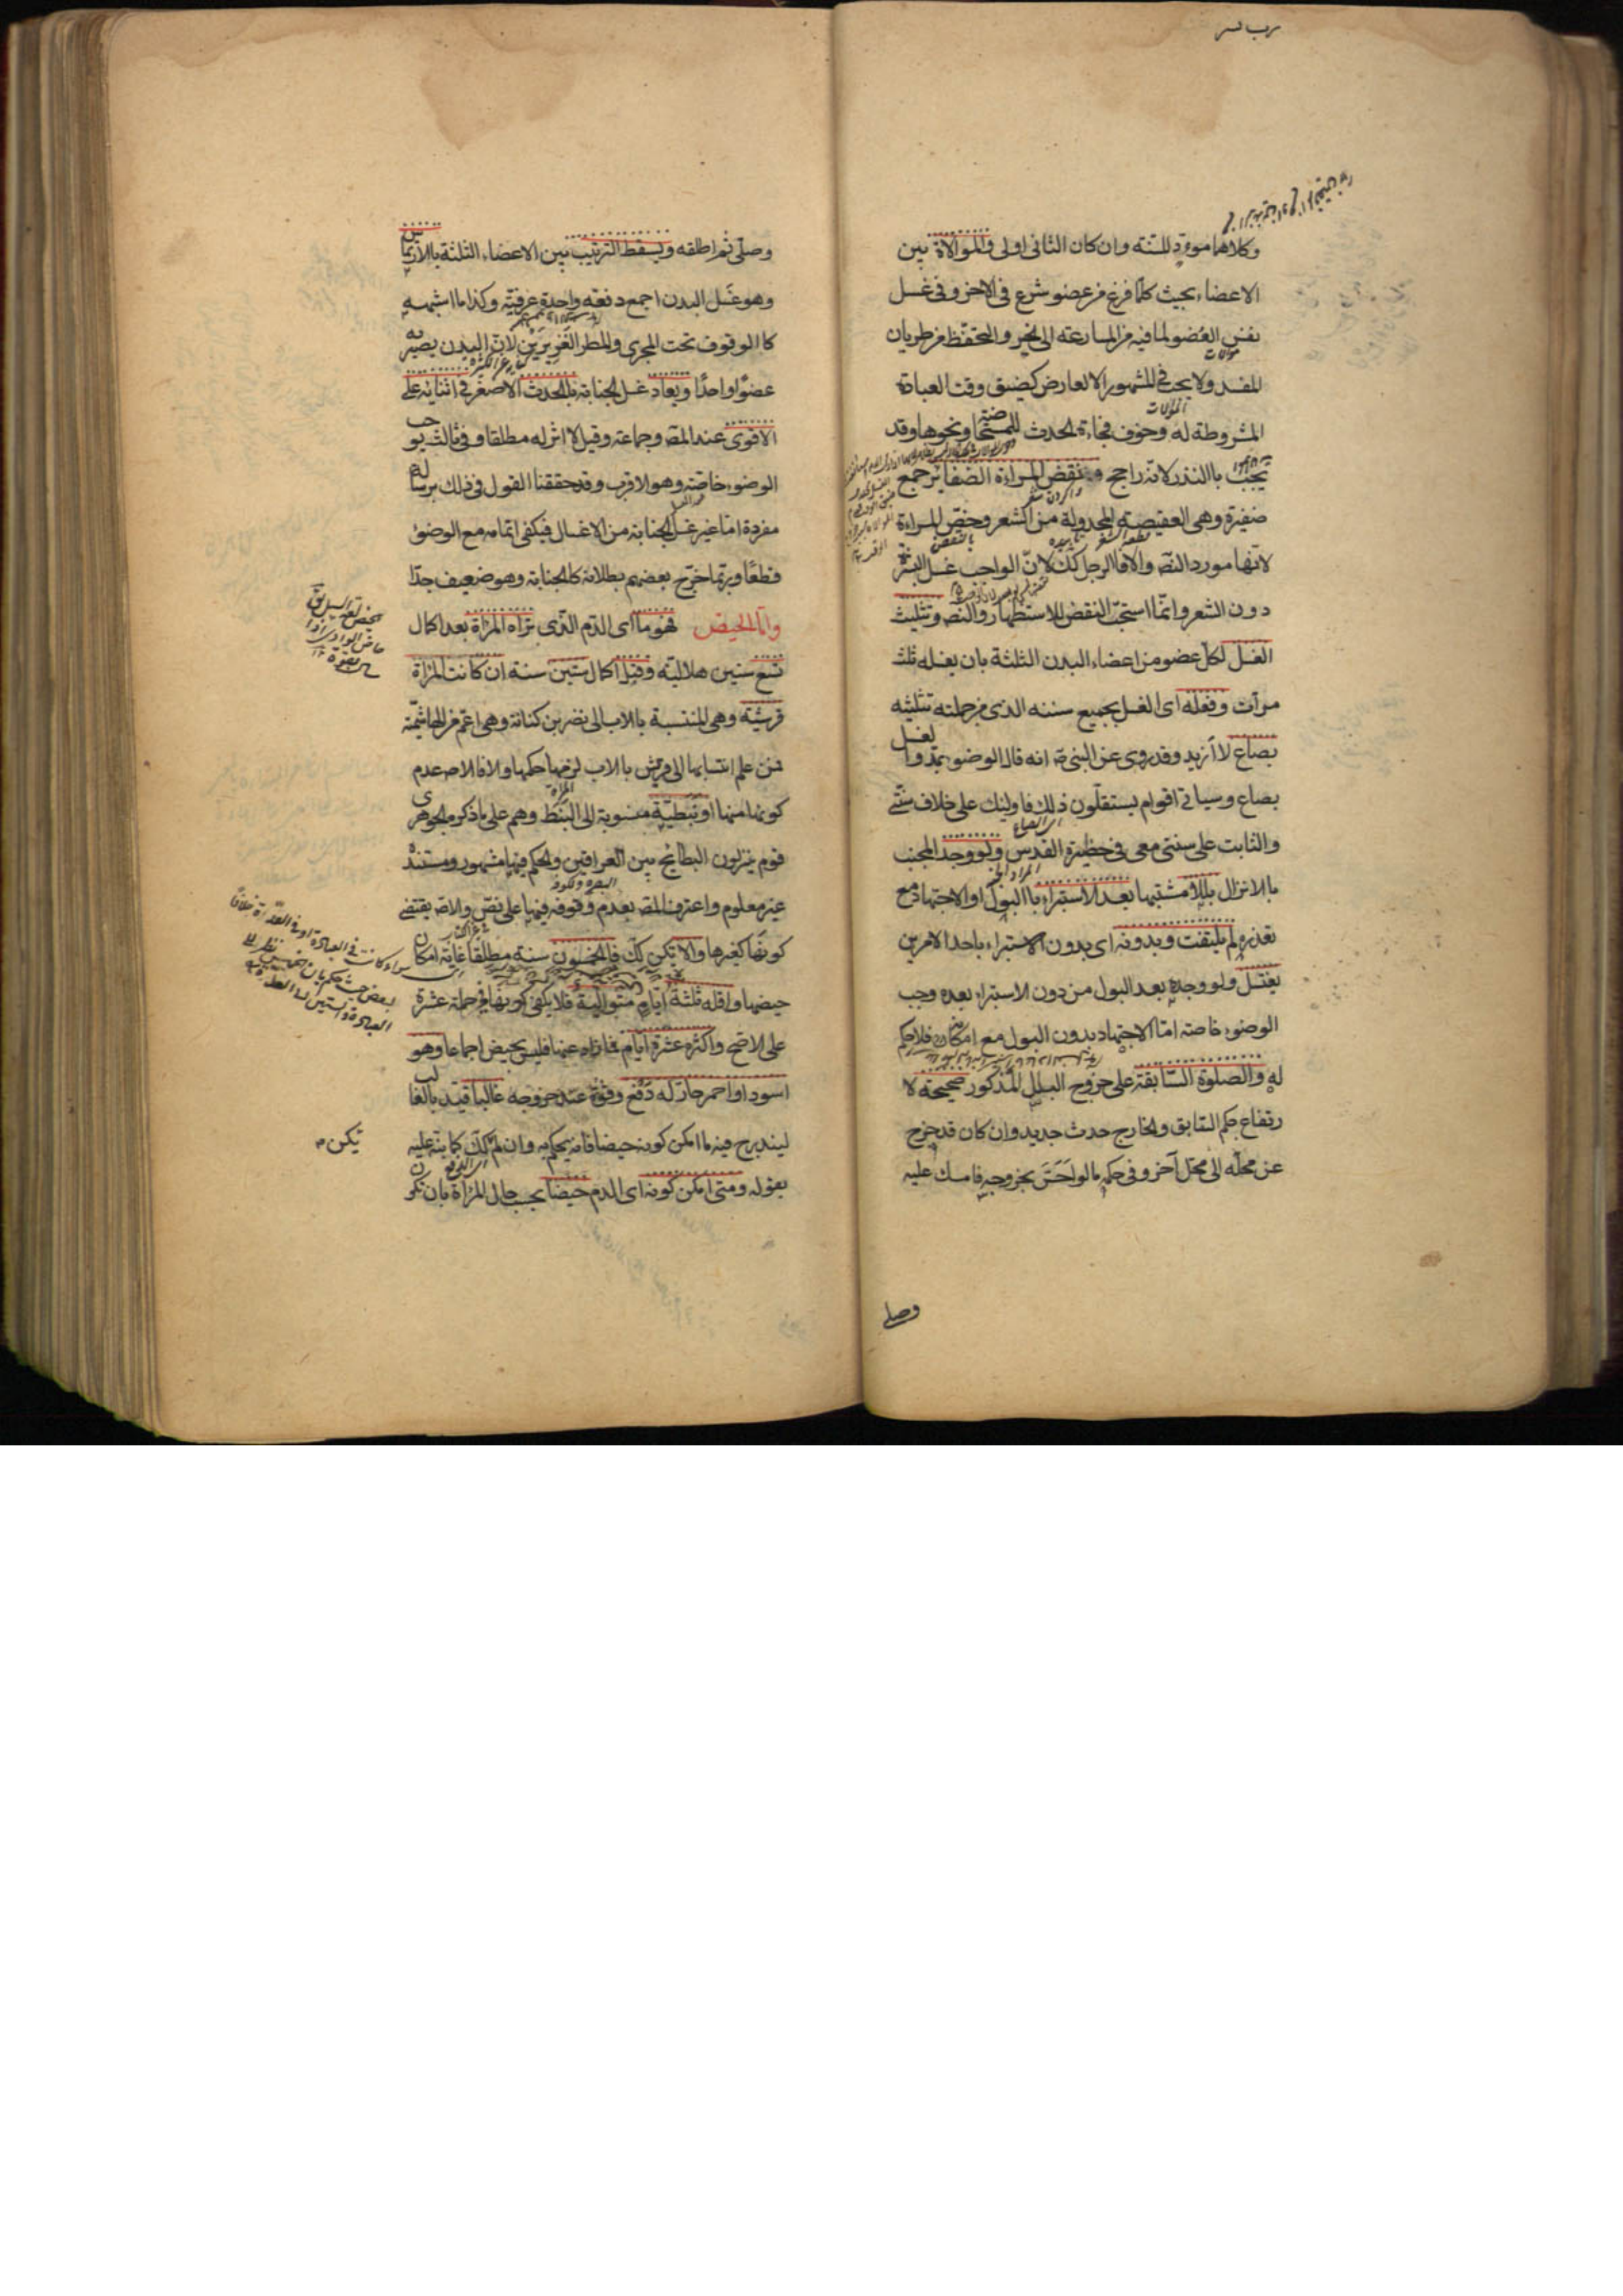 وكلاهما مؤد للسنة وان كان الثانى اولى والموالاة بين
الاعضاء بحيث كلما فرغ من عضو شرع فى الاخر وفى غسل
نفس العضو لما فيه من المسارعة الى الخير والتحفظ من طريان
المفسد ولا يجب فى المشهور الا لعارض كضيق وقت العبادة
المشروطة به وخوف فجأة الحدث للمستحاضة ونحوها وقد
تجب بالنذر لانه راجح ونقض المراة الضفائر جمع
ضفيرة وهى العقيصة المجدولة من الشعر وخص المراءة
لانها مورد النص والا فالرجل كك لان الواجب غسل البشرة
دون الشعر وانما استحب النقض للاستظهار والنص وتثليث
الغسل لكل عضو من اعضاء البدن الثلثة بان يغسله ثلث
مرات وفعله اى الغسل بجميع سننه الذى من جملته تثليثه
بصاع لا ازيد وقد روى عن النبى ص انه قال الوضوء بمد والغسل
بصاع وسياتى اقوام يستقلون ذلك فاولئك على خلاف سنتى
والثابت على سنتى معى فى حظيرة القدس ولو وجد المجنب
بالانزال بللا مشتبها بعد الاستبراء بالبول او الاجتهاد مع
تعذره لم يلتفت وبدونه اى بدون الاستبراء باحد الامرين
يغتسل ولو وجده بعد البول من دون الاستبراء بعده وجب
الوضوء خاصة اما الاجتهاد بدون البول مع امكانه فلا حكم
له والصلوة السابقة على خروج البلل المذكور صحيحة لا
رتفاع حكم السابق والخارج حدث جديد وان كان قد خرج
عن محله الى محل آخر وفى حكمه ما لو احس بخروجه فامسك عليه
وصلى
وصلى ثم اطلقه ويسقط الترتيب بين الاعضاء الثلثة بالارتماس
وهو غسل البدن اجمع دفعة واحدة عرفية وكذا ما اشبهه
كالوقوف تحت المجرى والمطر الغزيرين لان البدن يصير به
عضوا واحدا ويعاد غسل الجنابة بالحدث الاصغر فى اثنائه على
الاقوى عند المص وجماعة وقيل لا اثر له مطلقا وفى ثالث يوجب
الوضوء خاصة وهو الاقرب وقد حققنا القول فى ذلك برسالة
مفردة اما غير غسل الجنابة من الاغسال فيكفى اتمامه مع الوضوء
قطعا وربما خرج بعضهم بطلانه كالجنابة وهو ضعيف جدا
واما الحيض فهو ما اى الدم الذى تراه المراة بعد اكمال
تسع سنين هلالية وقبل اكمال ستين سنة ان كانت المراة
قرشية وهى المنتسبة بالاب الى نضر بن كنانة وهى اعم من الهاشمية
فمن علم انتسابها الى قريش بالاب لزمها حكمها والا فالاصل عدم
كونها منها او نبطية منسوبة الى النبط وهم على ما ذكره الجوهرى
قوم ينزلون البطائح بين العراقين والحكم فيها مشهور ومستنده
غير معلوم واعترف المص بعدم وقوفه فيها على نص والاصل يقتضى
كونها كغيرها والا يكن كك فالخمسون سنة مطلقا غاية امكان
حيضها واقله ثلثة ايام متوالية فلا يكفى كونها فى جملة عشرة
على الاصح واكثره عشرة ايام فما زاد عنها فليس بحيض اجماعا وهو
اسود او احمر حار له دفع وقوة عند خروجه غالبا قيد بالغالب
ليندرج فيه ما امكن كونه حيضا فانه يحكم به وان لم يكن كك كما ينبه عليه
بقوله ومتى امكن كونه اى الدم حيضا بحسب حال المراة بان تكون
يكن